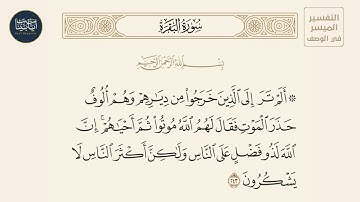 التفسير
الميسر
في الوصف
سُورَةُ البَقَرَةِ
بِسْمِ اللَّهِ الرَّحْمَٰنِ الرَّحِيمِ
۞ أَلَمْ تَرَ إِلَى الَّذِينَ خَرَجُوا مِن دِيَارِهِمْ وَهُمْ أُلُوفٌ
حَذَرَ الْمَوْتِ فَقَالَ لَهُمُ اللَّهُ مُوتُوا ثُمَّ أَحْيَاهُمْ ۚ إِنَّ
اللَّهَ لَذُو فَضْلٍ عَلَى النَّاسِ وَلَٰكِنَّ أَكْثَرَ النَّاسِ لَا
يَشْكُرُونَ ﴿٢٤٣﴾